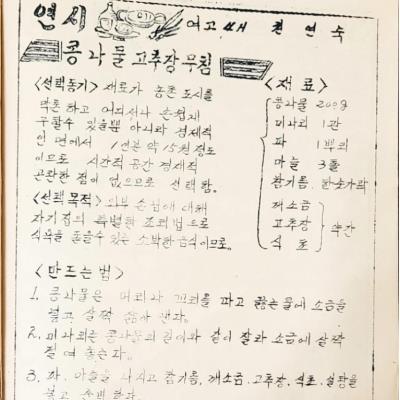 연시
여고 때 천연숙
콩나물 고추장 무침
<선택동기> 재료가 농촌 도시를
막론하고 어디서나 손쉽게
구할수 있을뿐 아니라 경제적
인 면에서 1인분 약 15원 정도
이므로 시간적 공간 경제적
곤란한 점이 없으므로 선택함.
<선택 목적> 외부 손님에 대해
자기집의 특별한 조리법으로
식욕을 돋울수 있는 소박한 음식이므로.
<재료>
콩나물 200g
미나리 1관
파 1뿌리
마늘 3톨
참기름. 한숟가락
깨소금
고추장 약간
식초
<만드는법>
1. 콩나물은 머리와 꼬리를 따고 끓는물에 소금을
넣고 살짝 삶아 낸다.
2. 미나리는 콩나물의 길이와 같이 잘라 소금에 살짝
절여 놓는다.
3. 파. 마늘을 다지고 참기름, 깨소금. 고추장. 식초. 설탕을
넣고